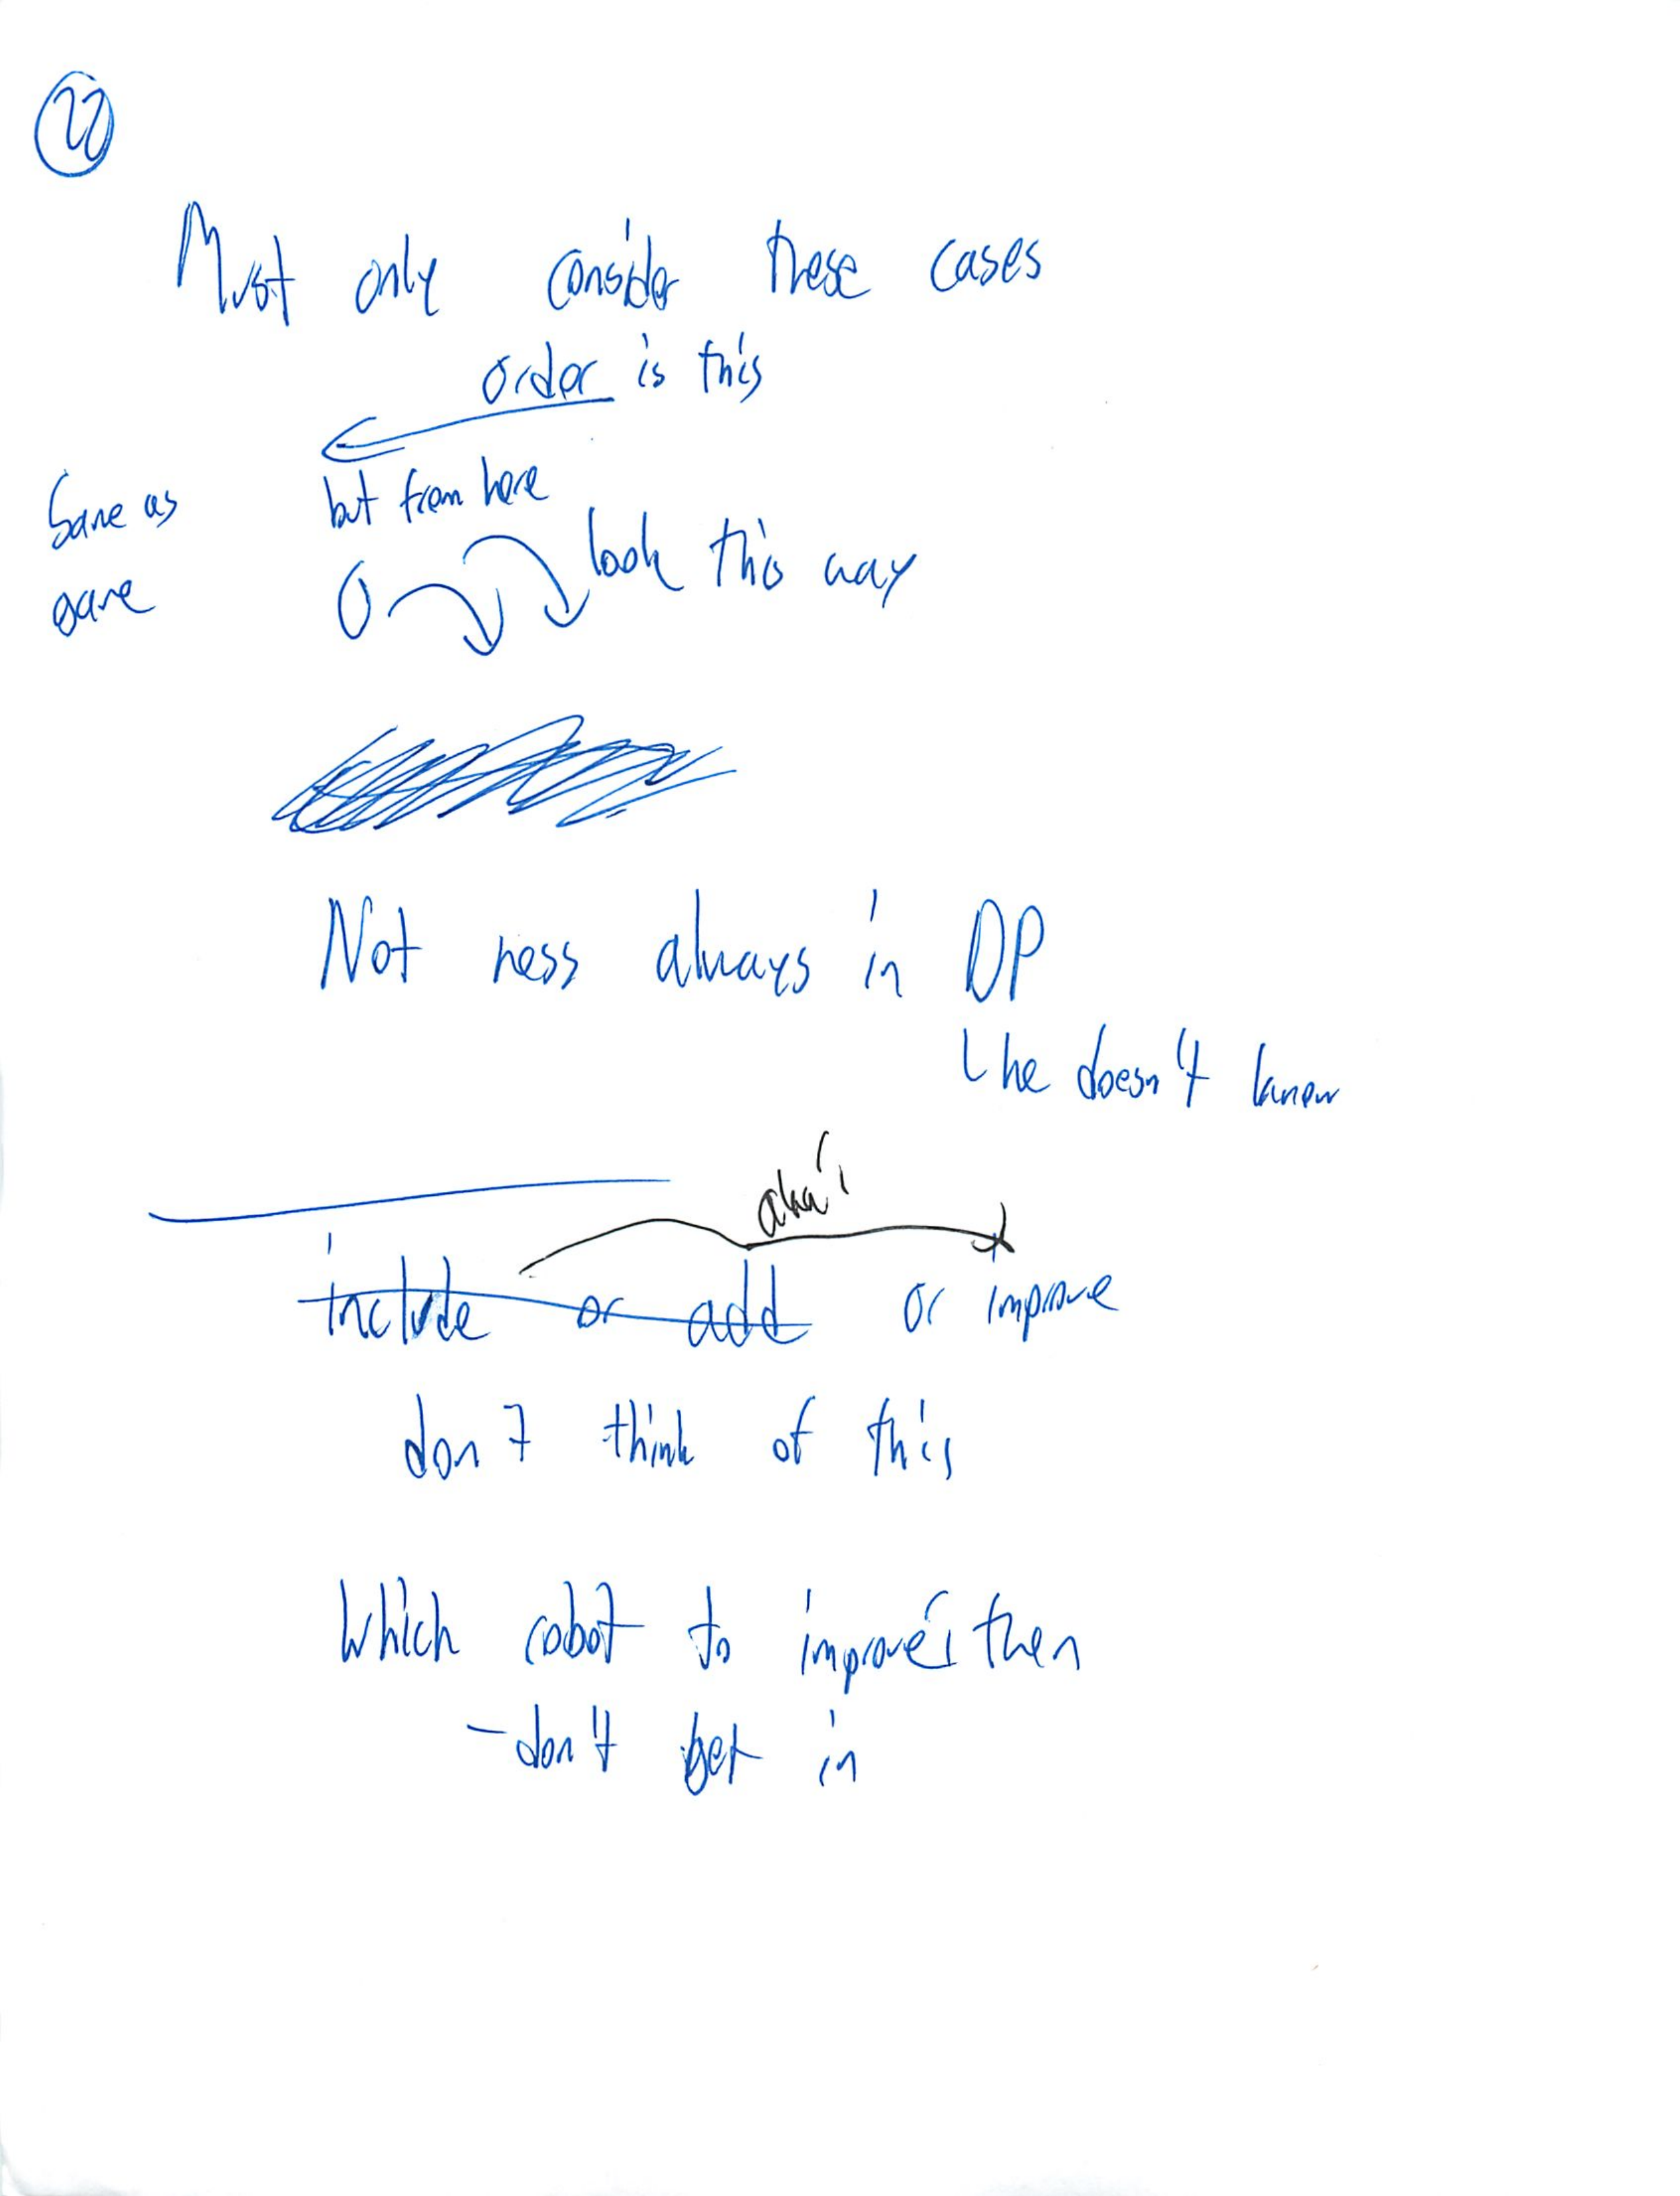 22
Must only consider these cases
order is this
Same as
game
but from here
look this way
Not ness always in DP
he doesn't know
aha!
include or add or improve
don't think of this
Which robot to improve then
- don't get in